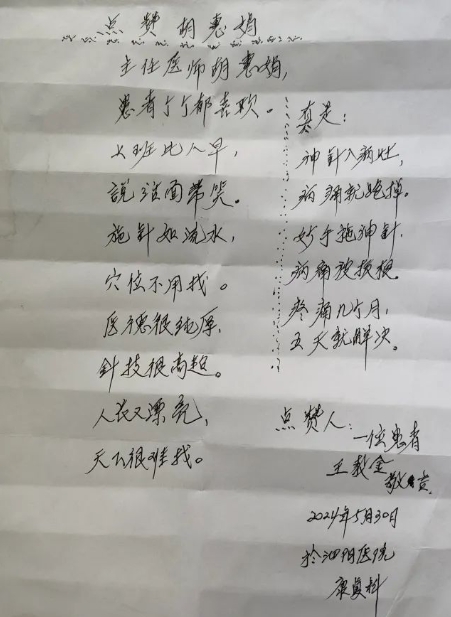 点赞胡惠娟
主任医师胡惠娟,
患者个个都喜欢。
上班比人早,
説话面带笑。
施针如流水,
穴位不用找。
医德很纯厚,
針技很高超。
人长又漂亮,
天下很难找。
真是:
神针入病灶,
病痛就跑掉。
妙手施神针,
病痛被
疼痛几个月,
五天就解决。
点赞人:
一位患者
王教金
敬
2024年5月30日
於泗阳医院
康复科